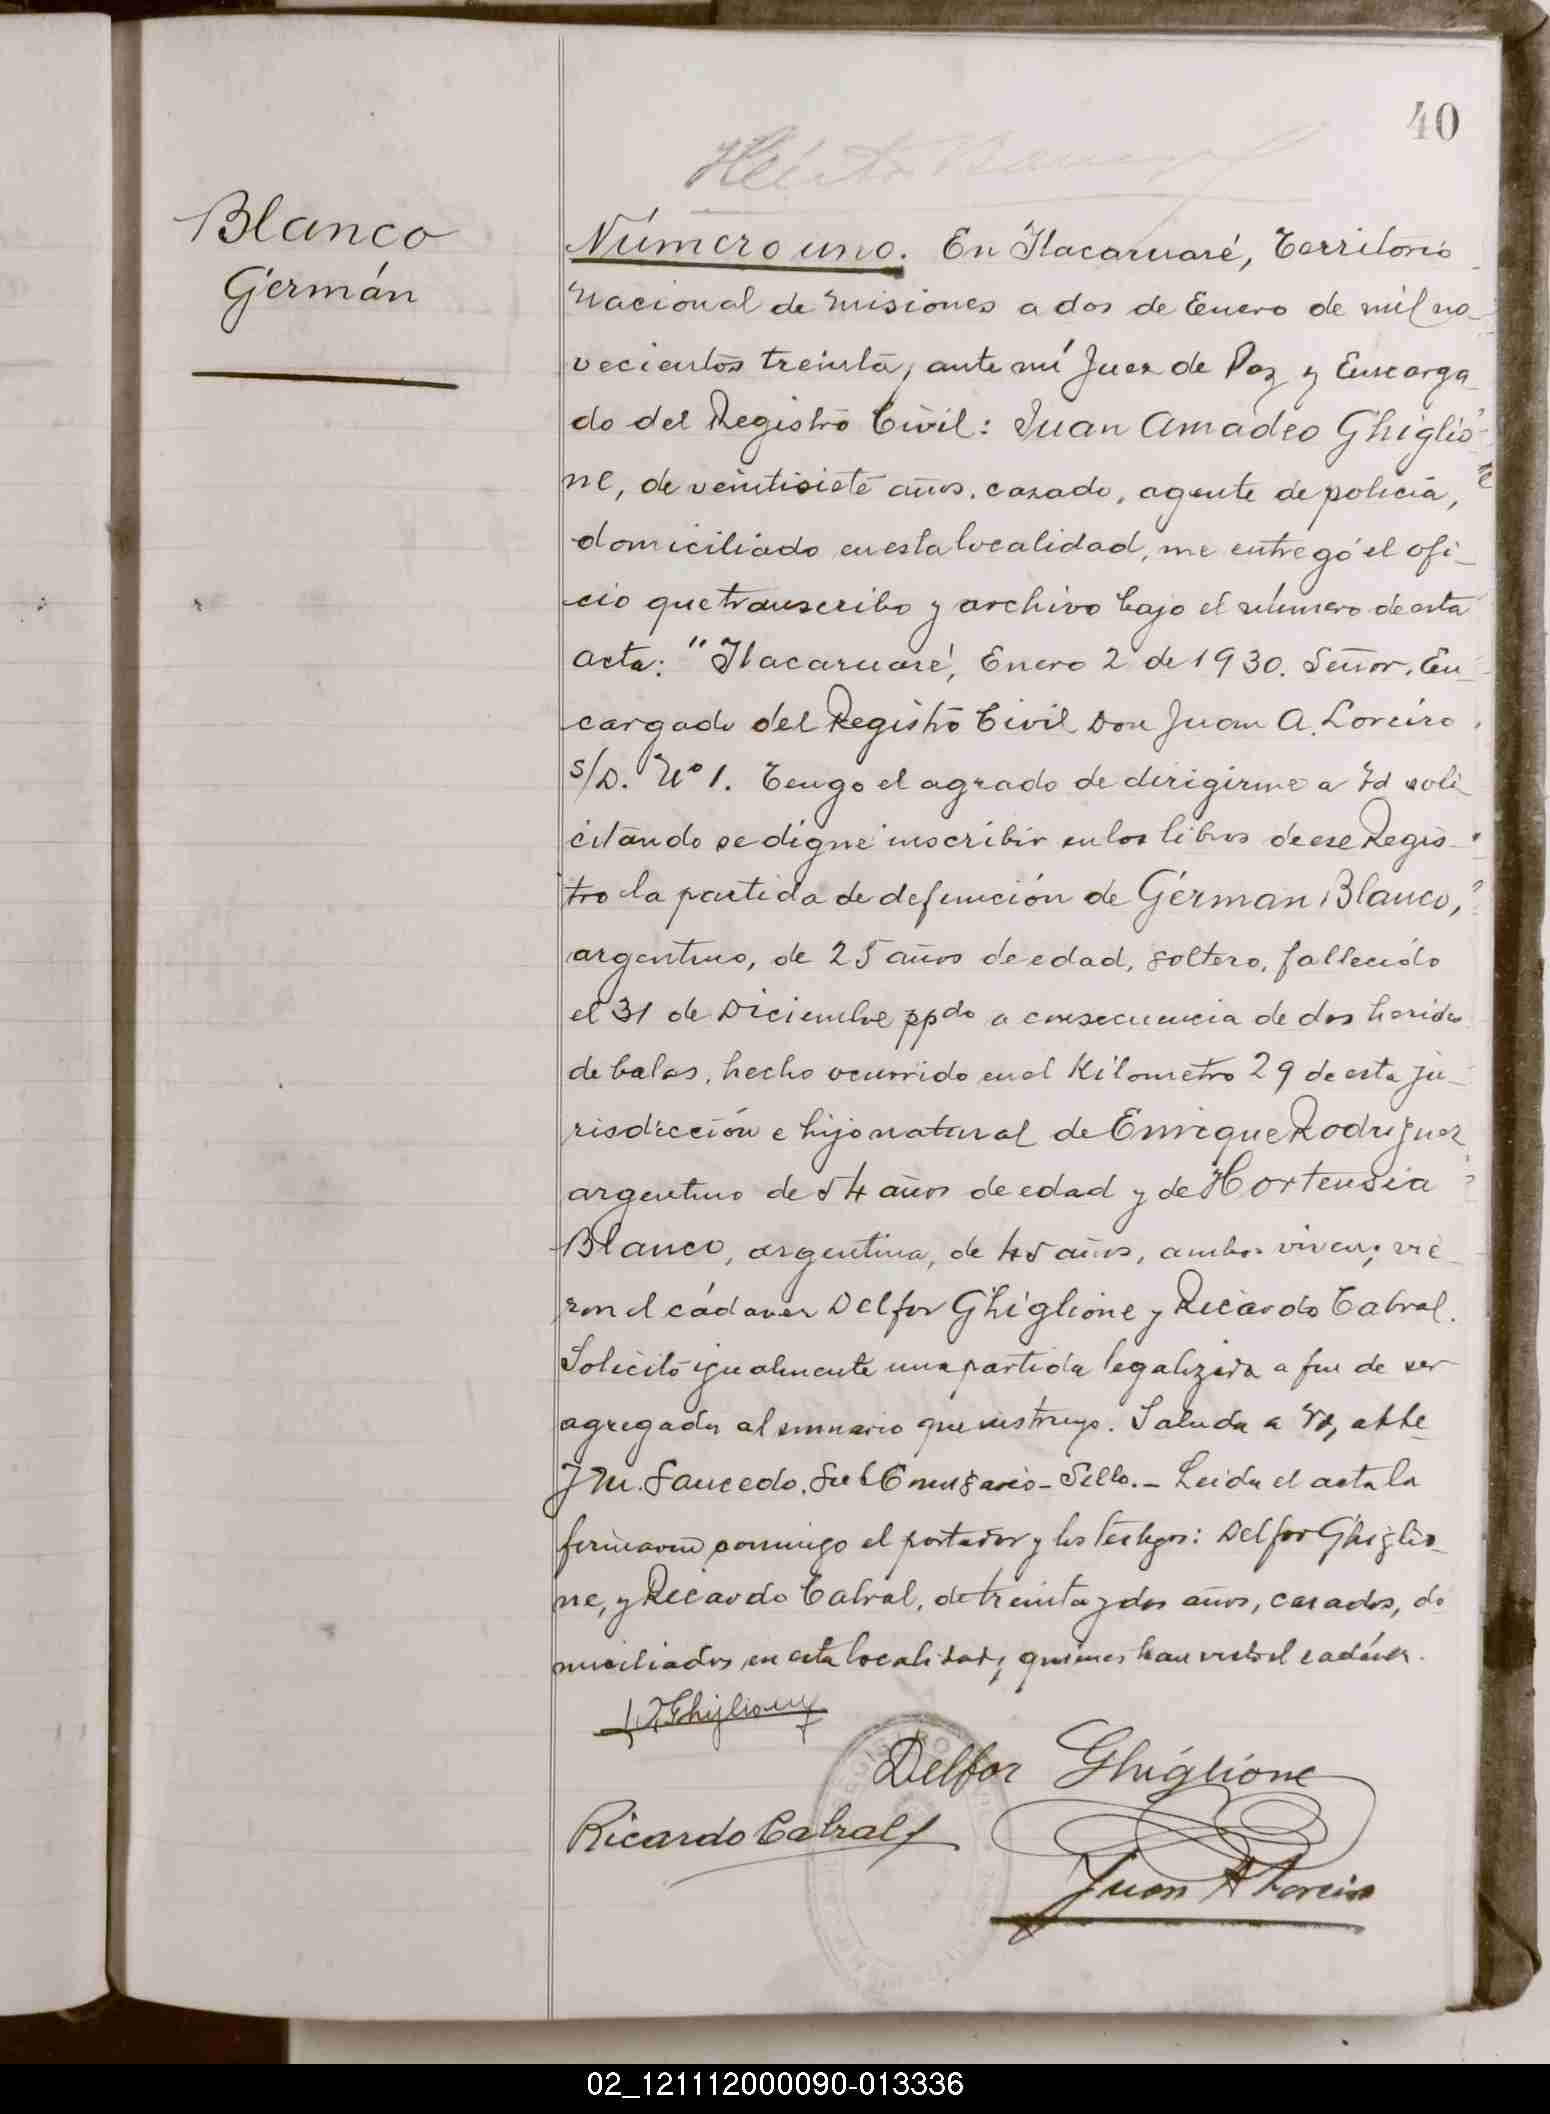 40
Blanco
Germán
Número uno. En Itacaruaré, Territorio
Nacional de Misiones a dos de Enero de mil no-
vecientos treinta, ante mí Juez de Paz y Encarga-
do del Registro Civil: Juan Amadeo Ghiglio-
ne, de veintisiete años, casado, agente de policía,
domiciliado en esta localidad, me entregó el ofi-
cio que transcribo y archivo bajo el número de esta
acta: "Itacaruaré, Enero 2 de 1930. Señor. En-
cargado del Registro Civil Don Juan A. Loreiro.
s/D. Nº 1. Tengo el agrado de dirigirme a Vd soli
citando se digne inscribir en los libros de ese Regis-
tro la partida de defunción de Gérman Blanco,
argentino, de 25 años de edad, soltero, fallecido
el 31 de Diciembre ppdo a consecuencia de dos heridas
de balas, hecho ocurrido en el Kilometro 29 de esta ju-
risdicción e hijo natural de Enrique Rodriguez
argentino de 54 años de edad y de Hortensia
Blanco, argentina, de 45 años, ambos viven; vie-
ron el cádaver Delfor Ghiglione y Ricardo Cabral.
Solicito igualmente una partida legalizada a fin de ser
agregada al sumario que instruyo. Saluda a Vd, atte
J M. Saucedo. Sub Comisario - Sello. - Leida el acta la
firmaron conmigo el portador y los testigos: Delfor Ghiglio-
ne, y Ricardo Cabral, de treinta y dos años, casados, do
miciliados en esta localidad, quienes han visto el cadáver.
J A Ghiglione
Delfor Ghiglione
Ricardo Cabral
Juan A Loreiro
02_121112000090-013336